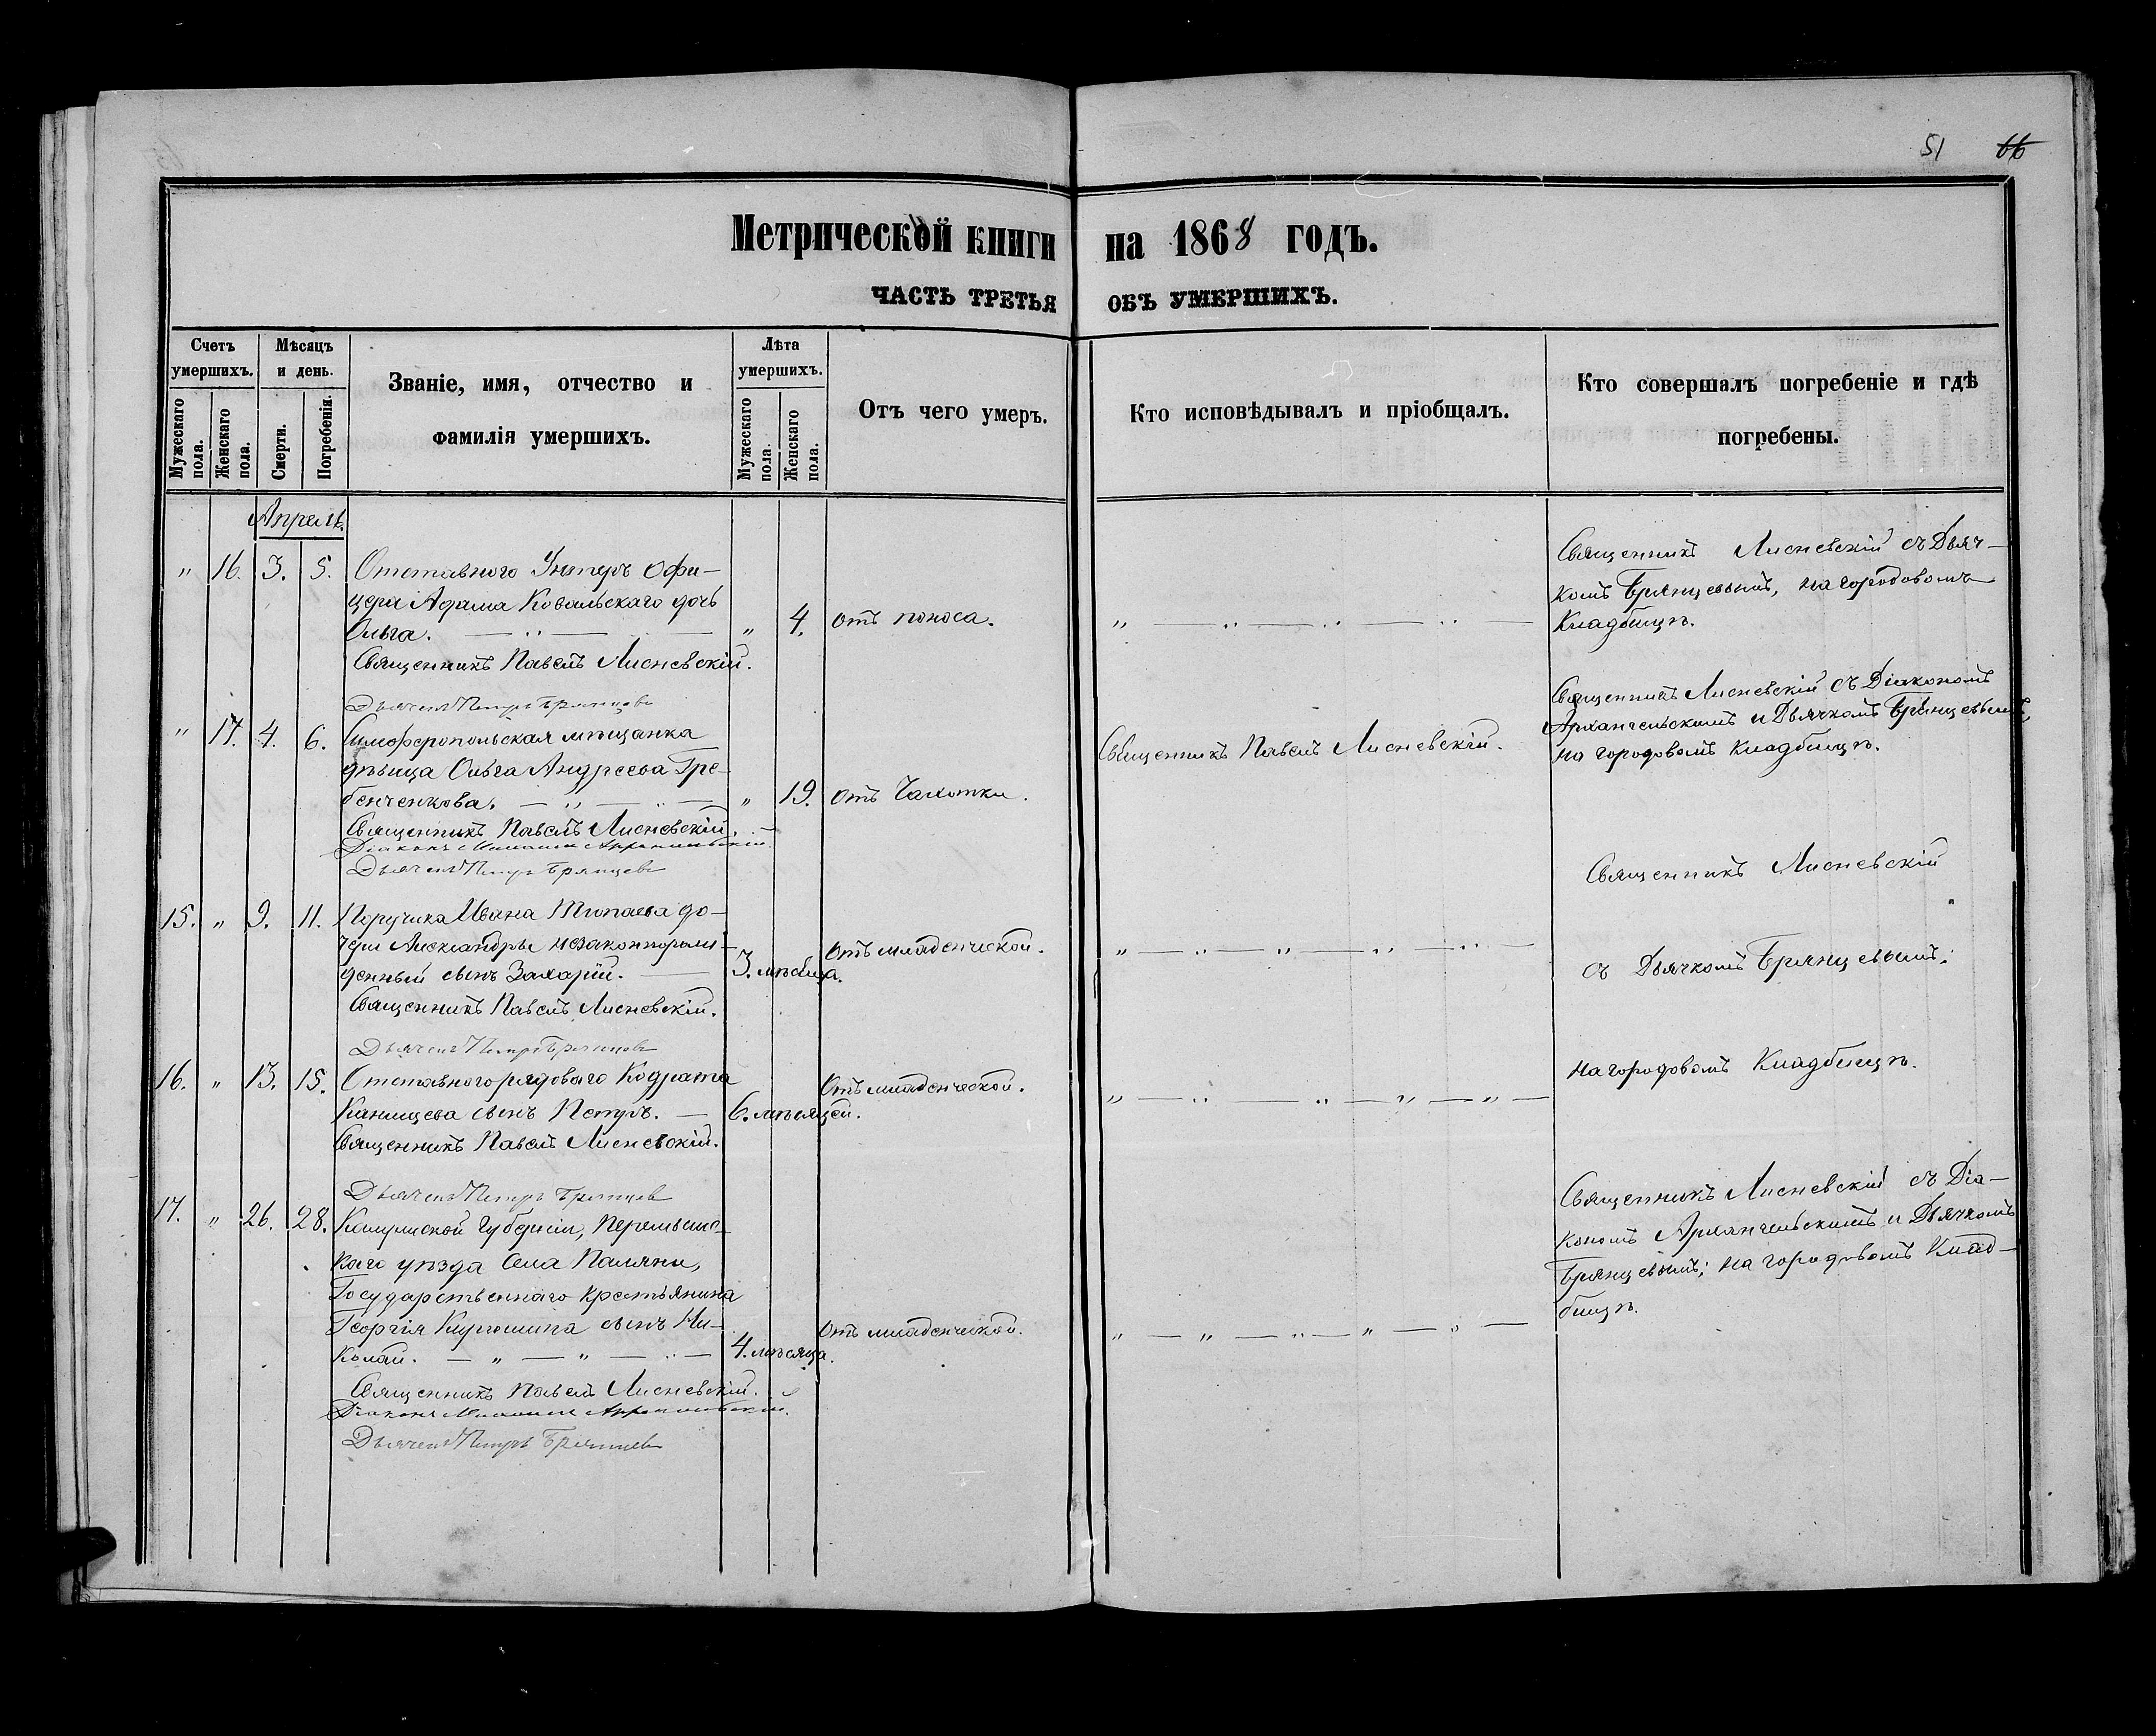 51 66
Метрической книги на 1868 годъ.
ЧАСТЬ ТРЕТЬЯ ОБЪ УМЕРШИХЪ.
Счетъ умершихъ.
Мужескаго пола.
Женскаго пола.
Мѣсяцъ и день.
Смерти.
Погребенія.
Званіе, имя, отчество и
фамилія умершихъ.
Лѣта умершихъ.
Мужескаго пола.
Женскаго пола.
Отъ чего умеръ.
Кто исповѣдывалъ и пріобщалъ.
Кто совершалъ погребеніе и гдѣ
погребены.
Апрель.
" 16. 3. 5. Отставного Унтеръ Офи-
цера Адама Ковальскаго дочь
Ольга. " 4. отъ поноса.
Священникъ Павелъ Лисневскій.
Дьячекъ Петръ Брянцевъ
Священникъ Лисневскій съ Дьяч-
комъ Брянцевымъ, на городовомъ
Кладбищѣ.
" 17. 4. 6. Симферопольская мѣщанка
дѣвица Ольга Андреева Гре-
бенченкова. " 19. отъ Чахотки.
Священникъ Павелъ Лисневскій.
Діаконъ Михаилъ Архангельскій
Дьячекъ Петръ Брянцевъ
Священникъ Павелъ Лисневскій.
Священникъ Лисневскій съ Діакономъ
Архангельскимъ и Дьячкомъ Брянцевымъ,
на городовомъ Кладбищѣ.
15. " 9. 11. Поручика Ивана Типаева до-
чери Александры незаконнорож-
денный сынъ Захарій. 3. мѣсяца. Отъ младенческой.
Священникъ Павелъ Лисневскій.
Дьячекъ Петръ Брянцевъ
Священникъ Лисневскій
съ Дьячкомъ Брянцевымъ;
на городовомъ Кладбищѣ.
16. " 13. 15. Отставного рядоваго Кодрата
Канищева сынъ Петръ. 6. мѣсяцей. Отъ младенческой.
Священникъ Павелъ Лисневскій.
Дьячекъ Петръ Брянцевъ
17. " 26. 28. Калужской Губерніи, Перемышль-
каго уѣзда Села Поляны,
Государственнаго крестьянина
Георгія Курюшина сынъ Ни-
колай. 4. мѣсяца. Отъ младенческой.
Священникъ Павелъ Лисневскій.
Діаконъ Михаилъ Архангельскій.
Дьячекъ Петръ Брянцевъ
Священникъ Лисневскій съ Діа-
кономъ Архангельскимъ и Дьячкомъ
Брянцевымъ; на городовомъ Клад-
бищѣ.